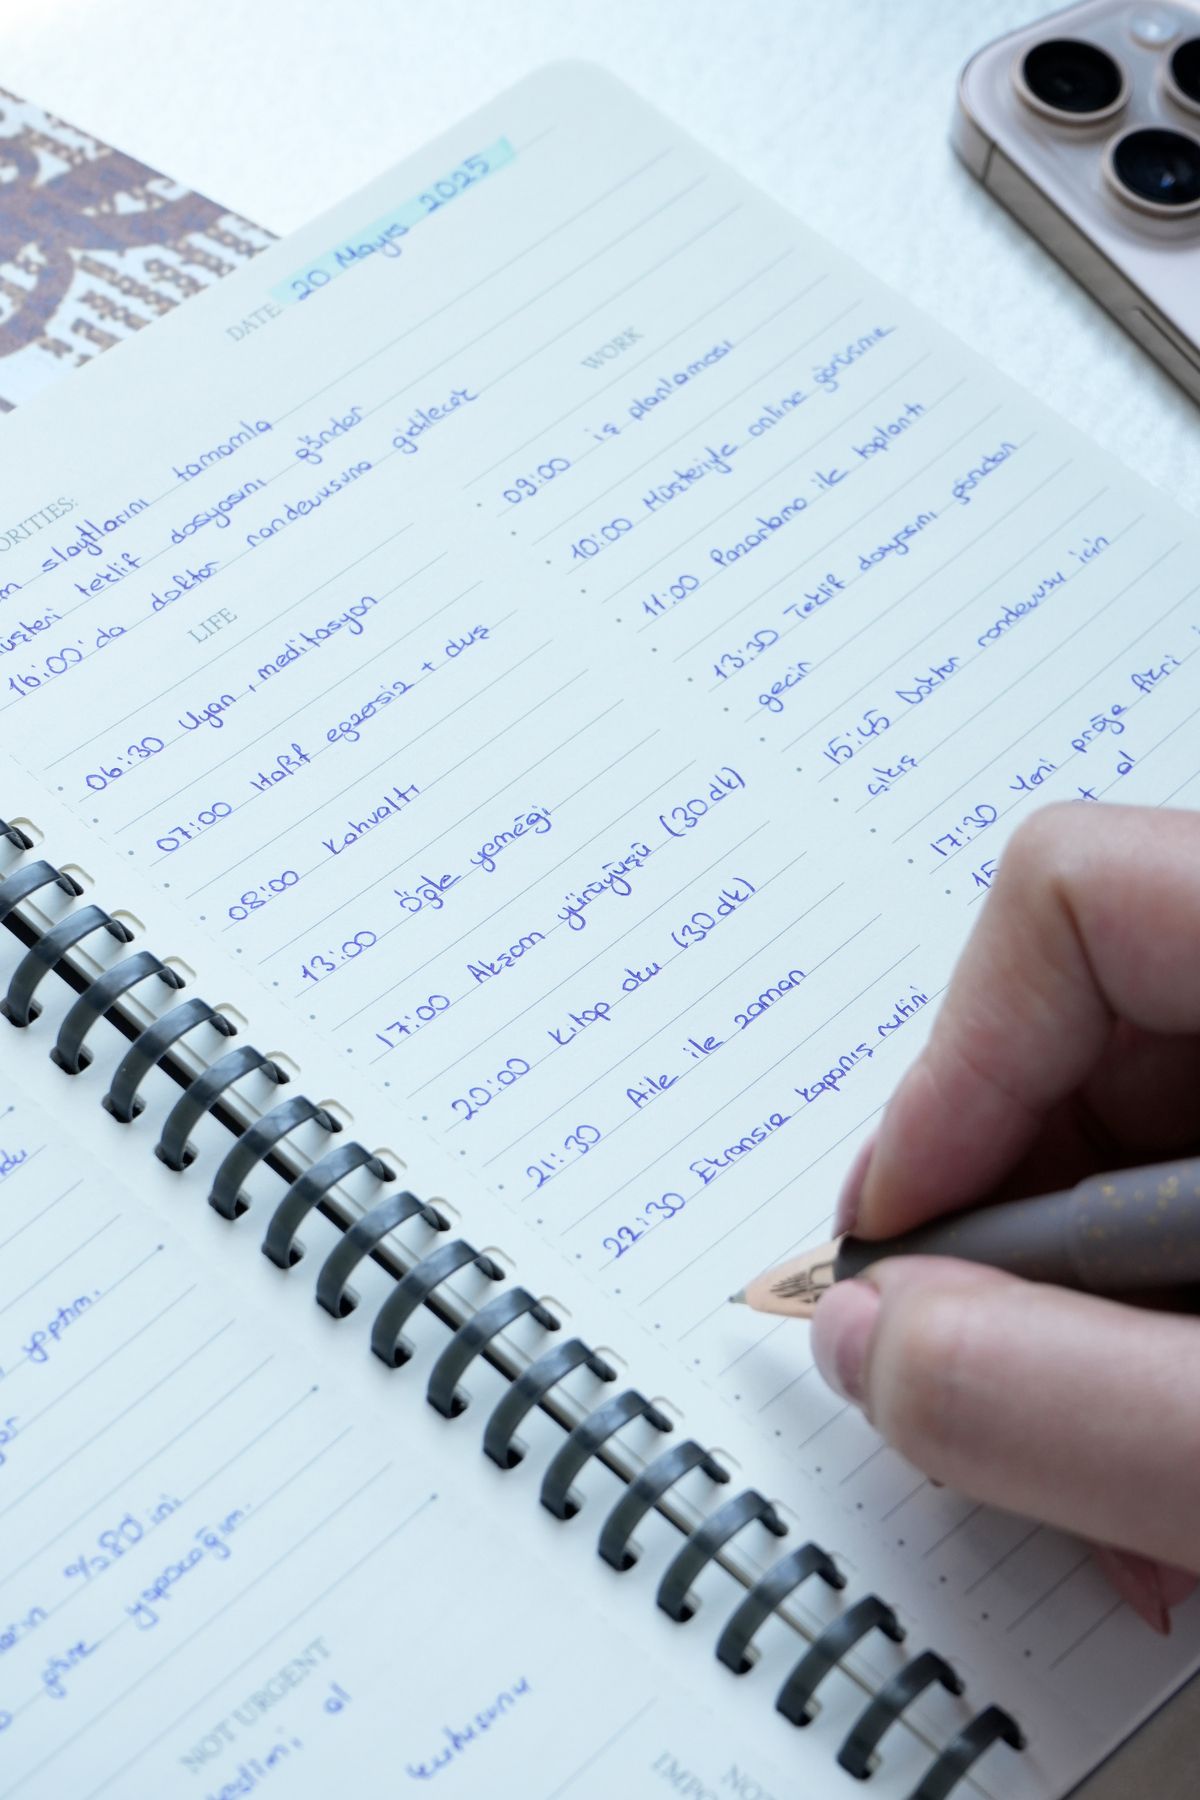 DATE 20 Mayıs 2025
ORITIES:
m slaytlarını tamamla
üşteri teklif dosyasını gönder
16:00'da doktor randevusuna gidilecek
LIFE
06:30 Uyan, meditasyon
07:00 Hafif egzersiz + duş
08:00 Kahvaltı
13:00 Öğle yemeği
17:00 Akşam yürüyüşü (30 dk)
20:00 Kitap oku (30 dk)
21:30 Aile ile zaman
22:30 Ekransız kapanış rutini
WORK
09:00 iş planlaması
10:00 Müşteriyle online görüşme
11:00 Pazarlama ile toplantı
13:30 Teklif dosyasını gözden
geçir
15:45 Doktor randevusu için
çıkış
17:30 Yeni proje fikri
15 al
yaptım.
%80'ini
göre yapacağım.
NOT URGENT
al
kutusunu
NOT
IMPO